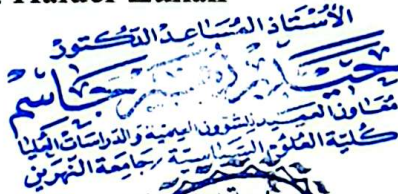 Haider Zahan
الأستاذ المساعد الدكتور
جاسم
معاون العميد للشؤون العلمية والدراسات العليا
كلية العلوم السياسية / جامعة النهرين